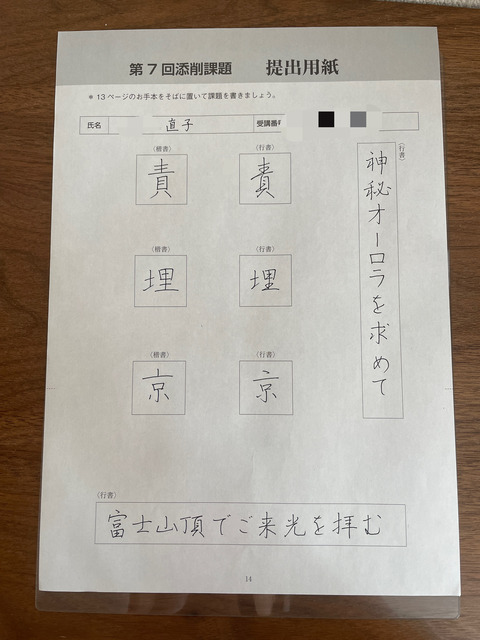 第7回添削課題 提出用紙
＊13ページのお手本をそばに置いて課題を書きましょう。
氏名 直子 受講番号
〈行書〉
神秘オーロラを求めて
〈楷書〉 〈行書〉
責 責
〈楷書〉 〈行書〉
埋 埋
〈楷書〉 〈行書〉
京 京
〈行書〉
富士山頂でご来光を拝む
14